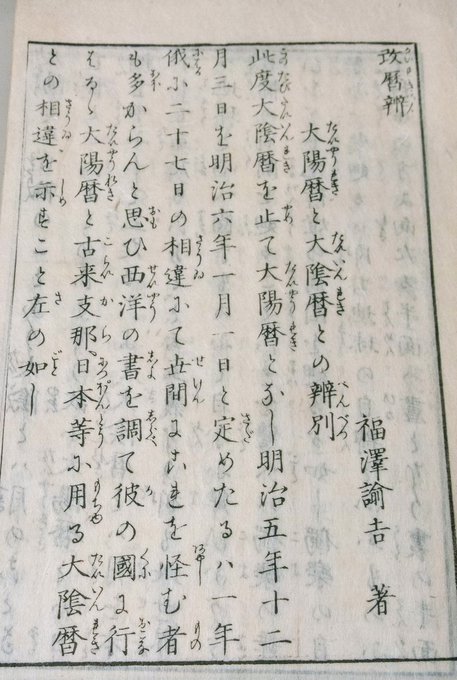 改暦辨
福澤諭吉 著
大陽暦と大陰暦との辨別
此度大陰暦を止て大陽暦となし明治五年十二
月三日を明治六年一月一日と定めたるハ一年
俄に二十七日の相違にて世間にこれを怪む者
も多からんと思ひ西洋の書を調て彼の國に行
はるゝ大陽暦と古来支那、日本等に用る大陰暦
との相違を示すこと左の如し